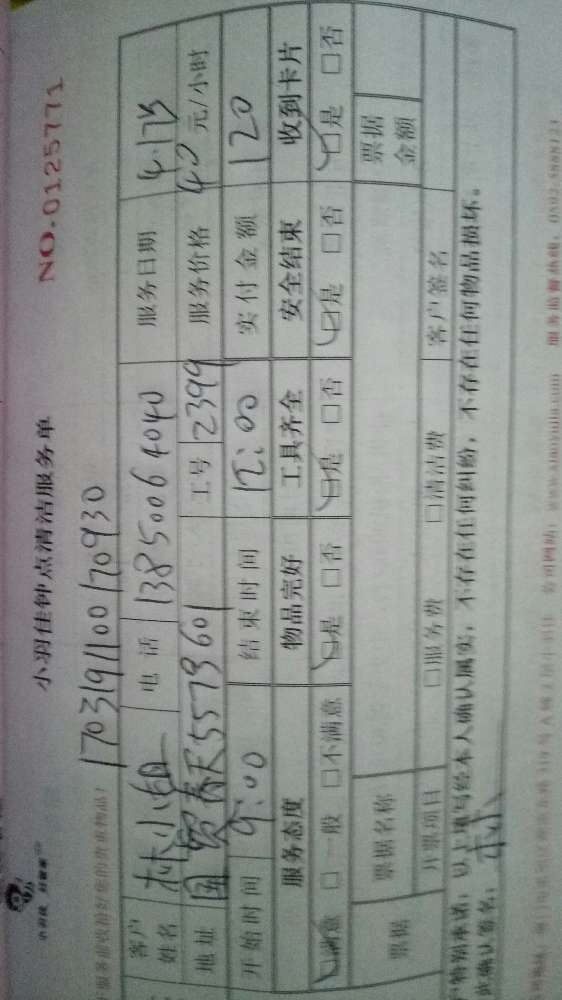 小羽佳钟点清洁服务单 NO.0125771
1703191100170930
客户姓名 林小姐 电话 13850064040 服务日期 4.17
地址 国贸春天557号601 工号 2399 服务价格 40 元/小时
开始时间 9:00 结束时间 12:00 实付金额 120
服务态度 物品完好 工具齐全 安全结束 收到卡片
☑满意 □一般 □不满意 ☑是 □否 ☑是 □否 ☑是 □否 ☑是 □否
票据 票据名称 票据金额
开票项目 □服务费 □清洁费 客户签名
以上填写经本人确认属实，不存在任何纠纷，不存在任何物品损坏。
确认签名： 林